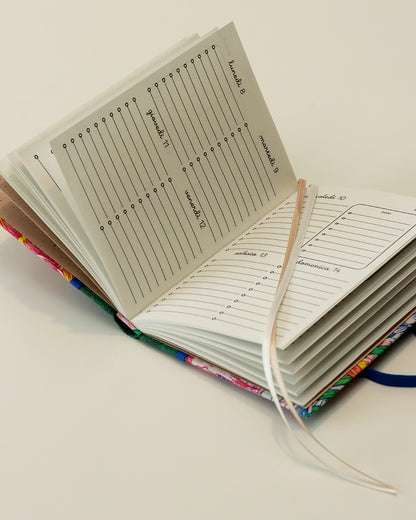 lunedì 8
martedì 9
giovedì 11
venerdì 12
coledì 10
sabato 13
domenica 14